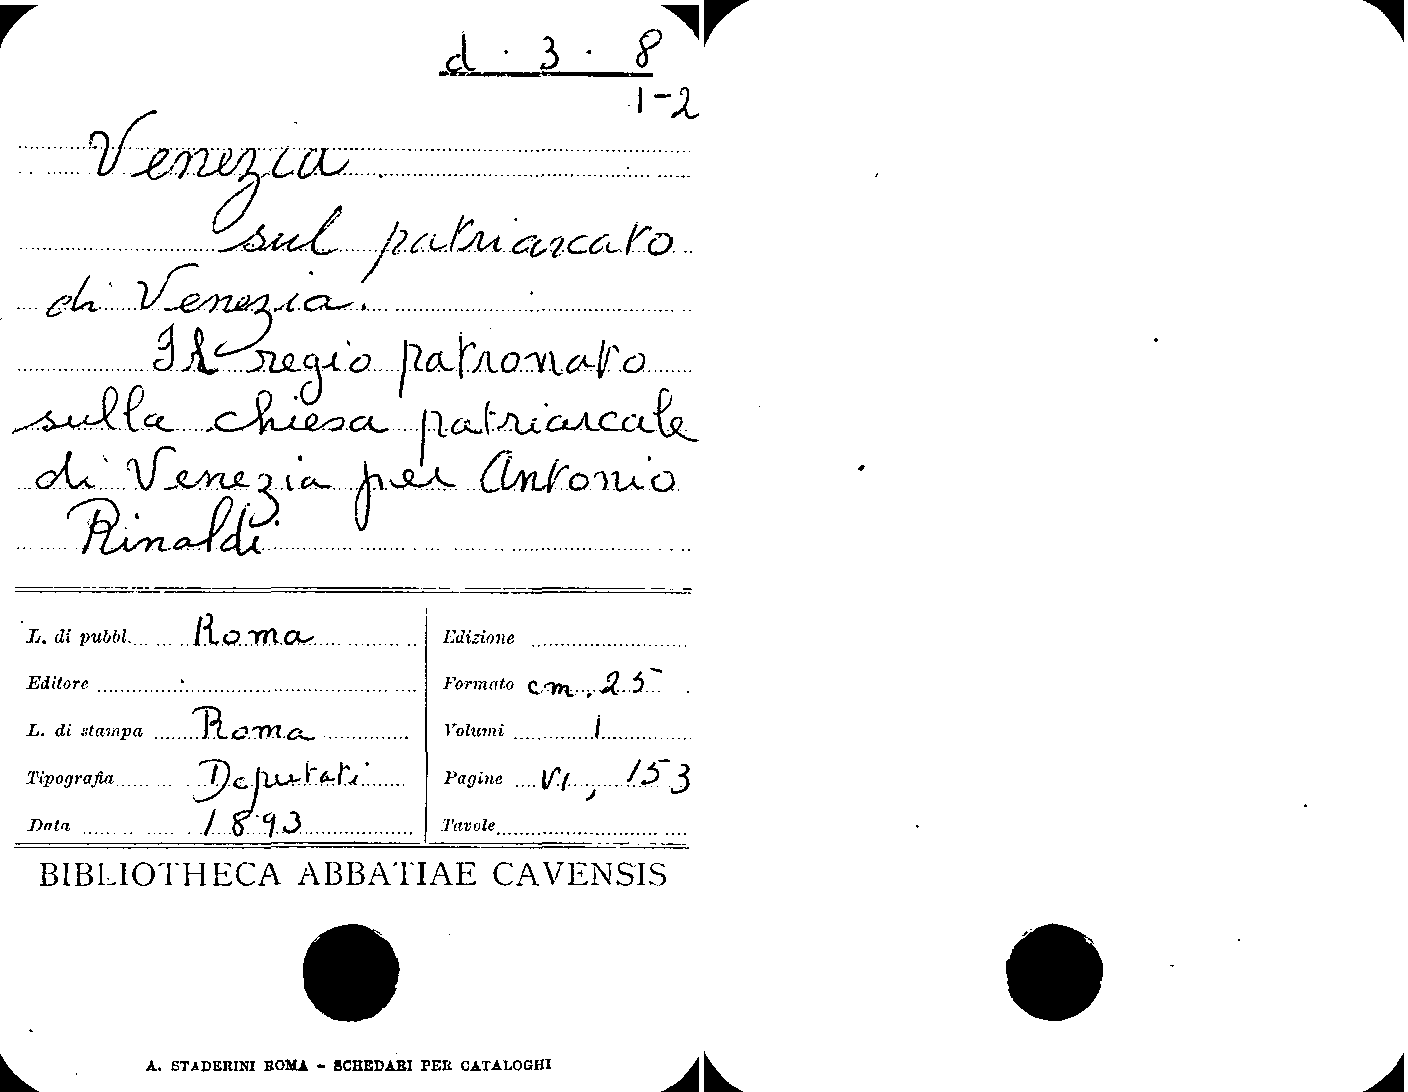 d · 3 · 8
1-2
Venezia.
sul patriarcato
di Venezia.
Il regio patronato
sulla chiesa patriarcale
di Venezia per Antonio
Rinaldi
L. di pubbl. Roma
Edizione
Editore
Formato cm. 25
L. di stampa Roma
Volumi 1
Tipografia Deputati
Pagine VI, 153
Data 1893
Tavole
BIBLIOTHECA ABBATIAE CAVENSIS
A. STADERINI ROMA - SCHEDARI PER CATALOGHI